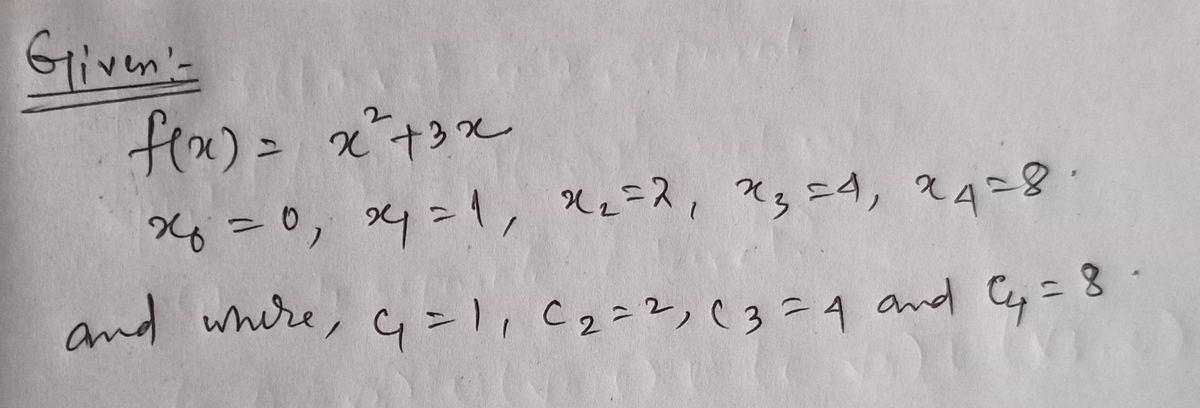 Given:-
f(x) = x²+3x
x₀ = 0, x₁ = 1, x₂=2, x₃=4, x₄=8.
and where, c₁=1, c₂=2, c₃=4 and c₄=8.